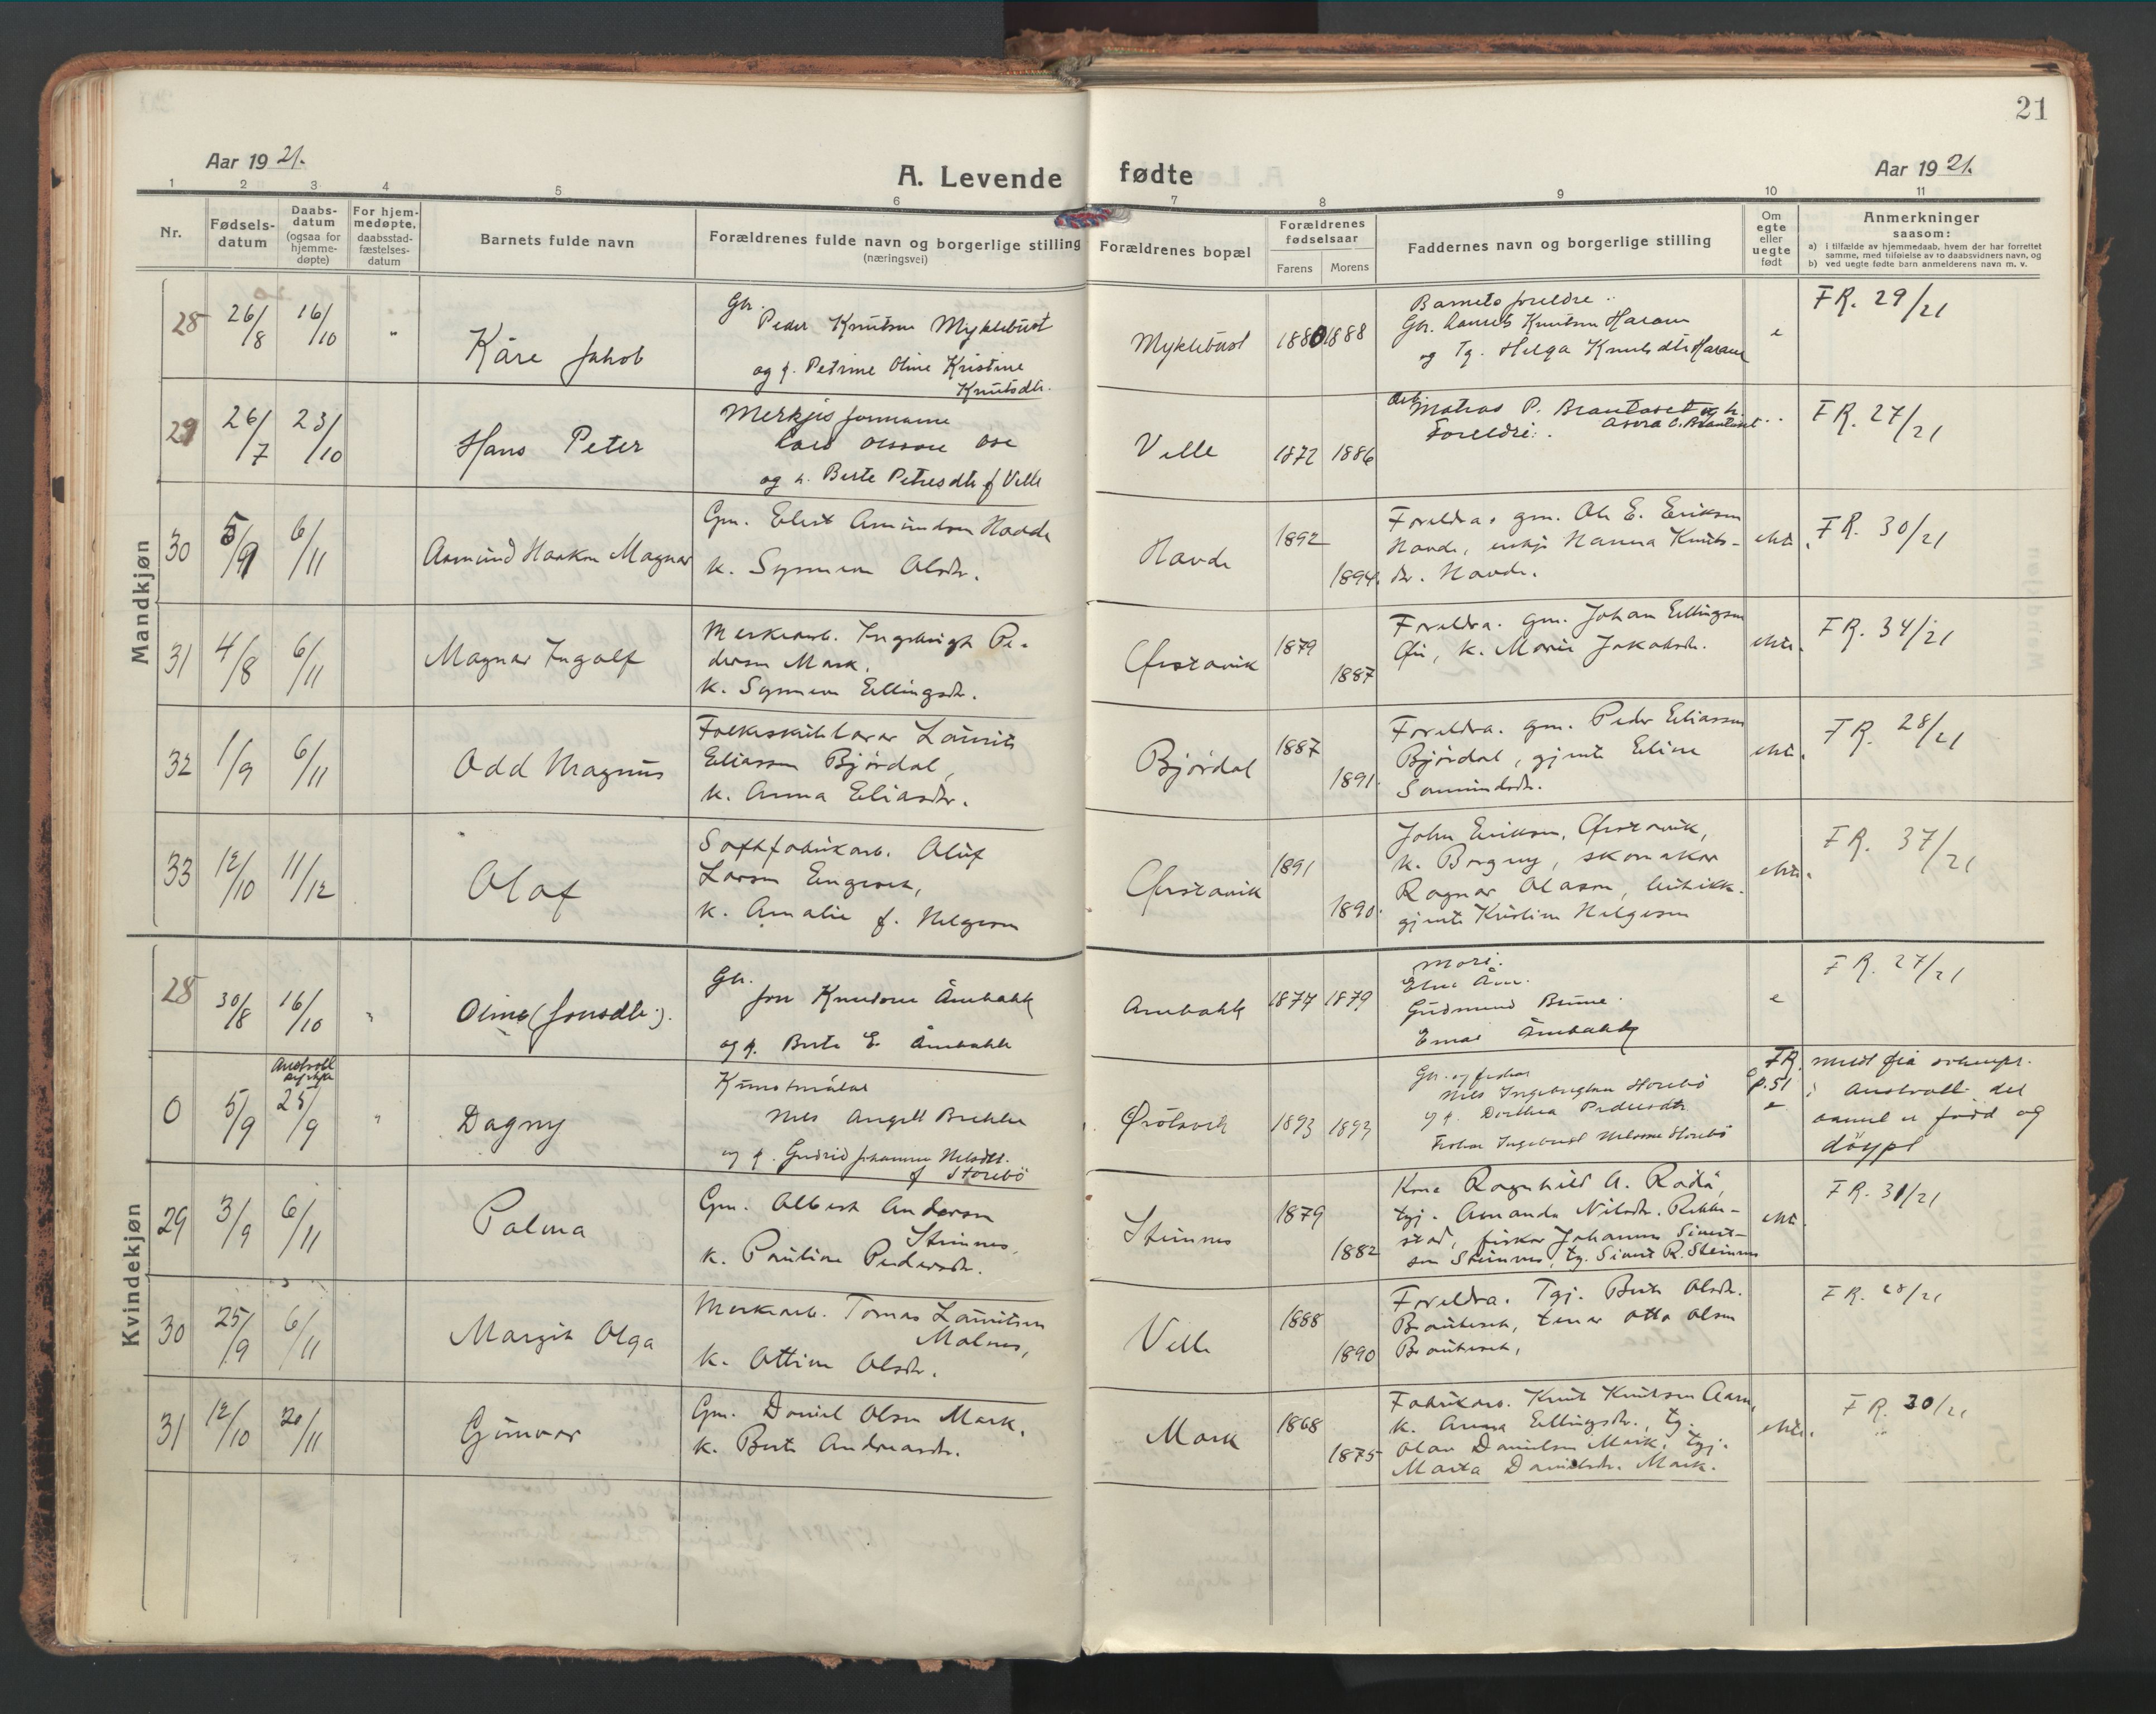 21
Aar 19 21.
A. Levende fødte
Aar 19 21.
1 2 3 4 5 6 7 8 9 10 11
Nr.
Fødsels-
datum
Daabs-
datum
(ogsaa for
hjemme-
døpte)
For hjem-
medøpte,
daabsstad-
fæstelses-
datum
Barnets fulde navn
Forældrenes fulde navn og borgerlige stilling
(næringsvei)
Forældrenes bopæl
Forældrenes
fødselsaar
Farens Morens
Faddernes navn og borgerlige stilling
Om
egte
eller
uegte
født
Anmerkninger
saasom:
a) i tilfælde av hjemmedaab, hvem der har forrettet
samme, med tilføielse av to daabsvidners navn, og
b) ved uegte fødte barn anmelderens navn m. v.
Mandkjøn
28 26/8 16/10 "
Kåre Jakob
Gbr.
Peder Knutsen Myklebust
og h. Petrine Oline Kristine
Knutsdtr.
Myklebust 1880 1888
Barnets foreldre
Gbr. Knutsen Haram
og Tg. Helga Knutsdtr Haram
e
FR. 29/21
29 26/7 23/10
Hans Peter
Lars Olsson Ose
og h. Berte Petersdtr f Velle
Velle 1872 1886
P. Brautaset og h.
Foreldre
FR. 27/21
30 5/9 6/11
Asmund Haakon Magnar
Gm. Elist Amundson Hovde
k. Synneve Olsdtr.
Hovde 1892 1894.
Foreldra, gm. Ole E. Erikson
Hovde, enkje Hanna Knuts-
dtr. Hovde.
ekte.
FR. 30/21
31 4/8 6/11
Magnar Ingolf
Merkearb. Ingebrigt Pe-
dersen Mork.
k. Synneve Ellingsdtr.
Ørstavik 1879 1887
Foreldra. gm. Johan Ellingsen
k. Marie Jakobsdtr.
ekte.
FR. 34/21
32 1/9 6/11
Odd Magnus
Folkeskulelærar Laurits
Eliassen Bjørdal,
k. Anna Eliasdtr.
Bjørdal 1887 1891.
Foreldra. gm. Peder Eliassen
Bjørdal, gjente Eline
ekte.
FR. 28/21
33 12/10 11/12
Olaf
Saftfabrikarb. Oluf
Larsen Engeset,
k. Amalie f. Helgesen
Ørstavik 1891 1890.
John Erikson, Ørstavik,
k. Borgny, skomakar
Ragnar Olason, butikk-
gjente Kristine Helgesen
ekte.
FR. 37/21
Kvindekjøn
28 30/8 16/10 "
Oline (Jonsdtr.).
Gbr.
Jon Knutsen Åmbakk
og h. Berte E. Åmbakk
Åmbakk 1874 1879
Mori.
Gudmund Brune.
Åmbakk
e
FR. 27/21
0 5/9 25/9 "
Dagny
Kunstmålar
Nils Angell Brekke
og h. Gudrid Johanne Nilsdtr.
f Storebö
Ørstavik 1893 1893
Gbr. og fiskar
Nils Ingebrigtsen Storebö
og h. Dorthea Pedersdtr
Fiskar Ingebrigt Nilssen Storebö
FR.
p. 51
e
i Austvoll det
barnet er född og
döypt
29 3/9 6/11
Palma
Gm. Albert Anderson
Steinnes,
k. Pauline Pedersdtr.
Steinnes 1879 1882
Kone Ragnhild A. Rødø,
tgj. Amanda Nilsdtr. Rekke-
stad, fiskar Johannes Sivert-
sen Steinnes, tg. Sivert R. Steinnes
ekte.
FR. 31/21
30 25/9 6/11
Margit Olga
Merkearb. Tomas Lauritsen
Malnes,
k. Ottine Olsdtr.
Velle 1888 1890
Foreldra. Tgj. Berte Olsdtr.
Brautaset, tenar Otto Olsen
Brautaset,
FR. 28/21
31 12/10 20/11
Gunvor
Gm. Daniel Olsen Mork.
k. Berte Andreasdtr.
Mork 1868 1875
Fabrikarb. Knut Knutsen Aam,
k. Anna Ellingsdtr., tg.
Olav Danielsen Mork, tgj.
Marta Danielsdtr. Mork.
ekte.
FR. 30/21